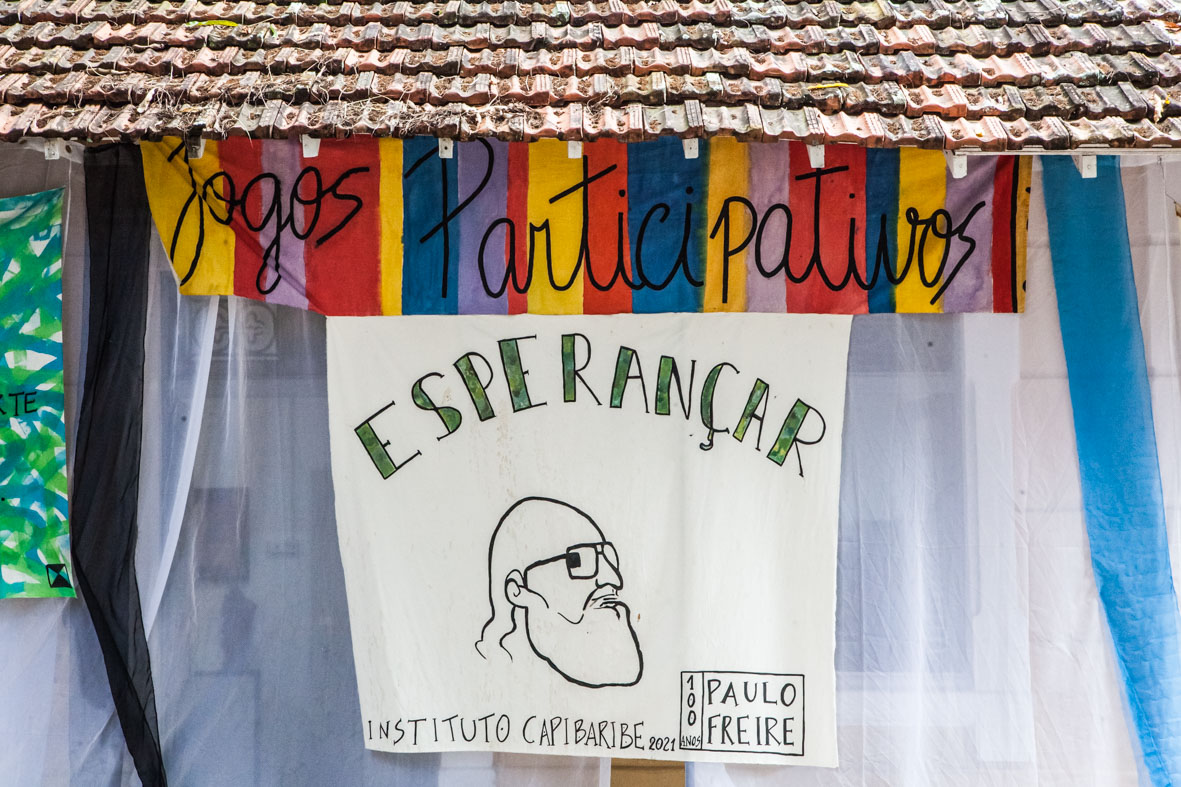 Jogos Participativos
ESPERANÇAR
INSTITUTO CAPIBARIBE 2021
100 ANOS
PAULO
FREIRE